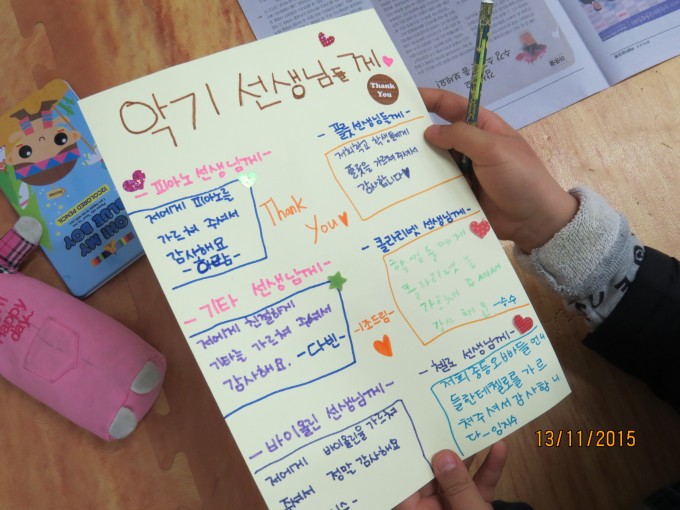 악기 선생님들께
Thank
You
- 피아노 선생님께 -
저에게 피아노를
가르쳐 주셔서
감사해요
Thank
You
- 플룻 선생님들께 -
저희학교 학생들에게
플룻을 가르쳐 주셔서
감사합니다
- 클라리넷 선생님께 -
클라리넷 을
가르쳐 주셔서
- 기타 선생님께 -
저에게 친절하게
기타를 가르쳐 주셔서
감사해요. - 다빈 -
- 1조드림 -
- 첼로 선생님께 -
저희 중등오빠들 언니
들한테첼로를 가르
쳐주셔서감사합니
다
- 바이올린 선생님께 -
저에게 바이올린을 가르쳐
주셔서 정말 감사해요
OH! MY
BLUE BOY
12COLORED PENCIL
happy
day
13/11/2015